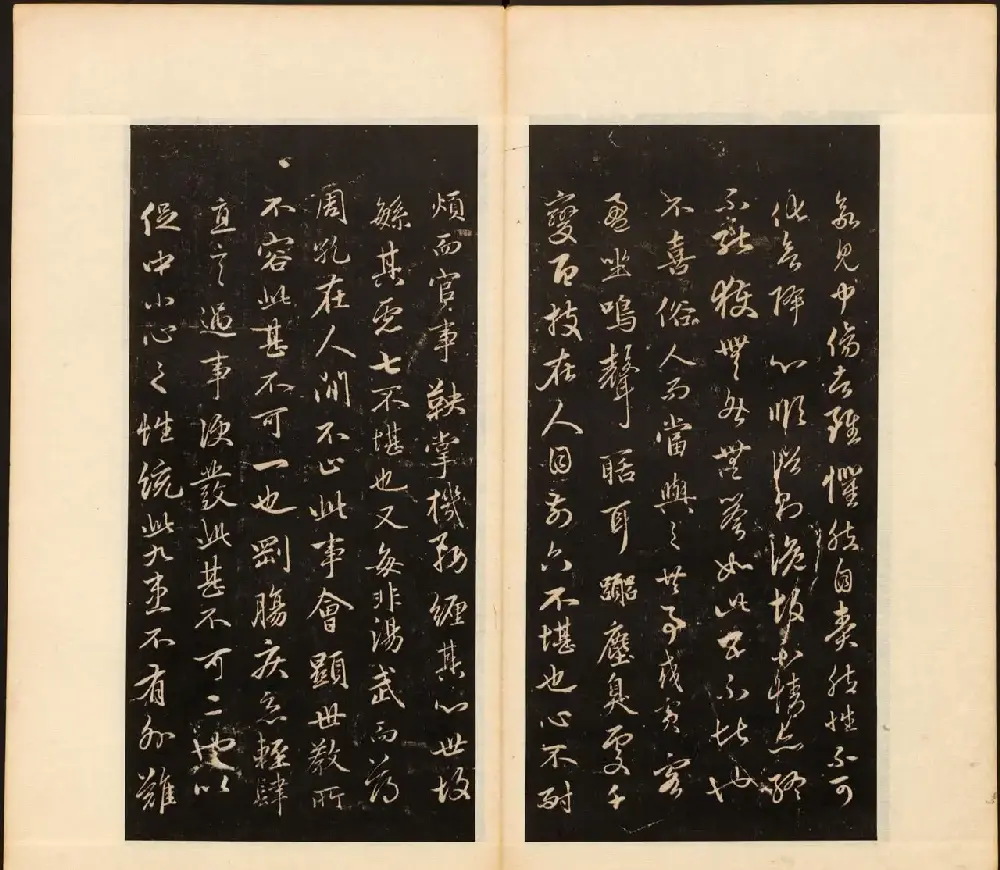 欲見中傷者雖懼然自責然性不可
化欲降心順俗則詭故不情亦終
不能獲無咎無譽如此五不堪也
不喜俗人而當與之共事或賓客
盈坐鳴聲聒耳囂塵臭處千
變百技在人目前六不堪也心不耐
煩而官事鞅掌機務纏其心世故
緐其慮七不堪也又每非湯武而薄
周孔在人間不止此事會顯世教所
不容此甚不可一也剛腸疾惡輕肆
直言遇事便發此甚不可二也以
促中小心之性統此九患不有外難